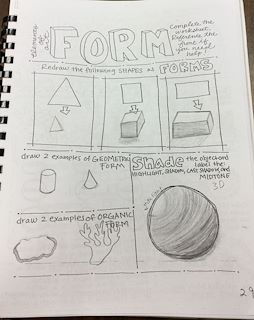 elements of art
FORM
Complete the
worksheet.
Reference the
if you need
help!
Redraw the following SHAPES as FORMS
draw 2 examples of GEOMETRIC
FORM
Shade the object and
label the:
HIGHLIGHT, SHADOW, CAST SHADOW, and
MIDTONE
3D
draw 2 examples of ORGANIC
FORM
29